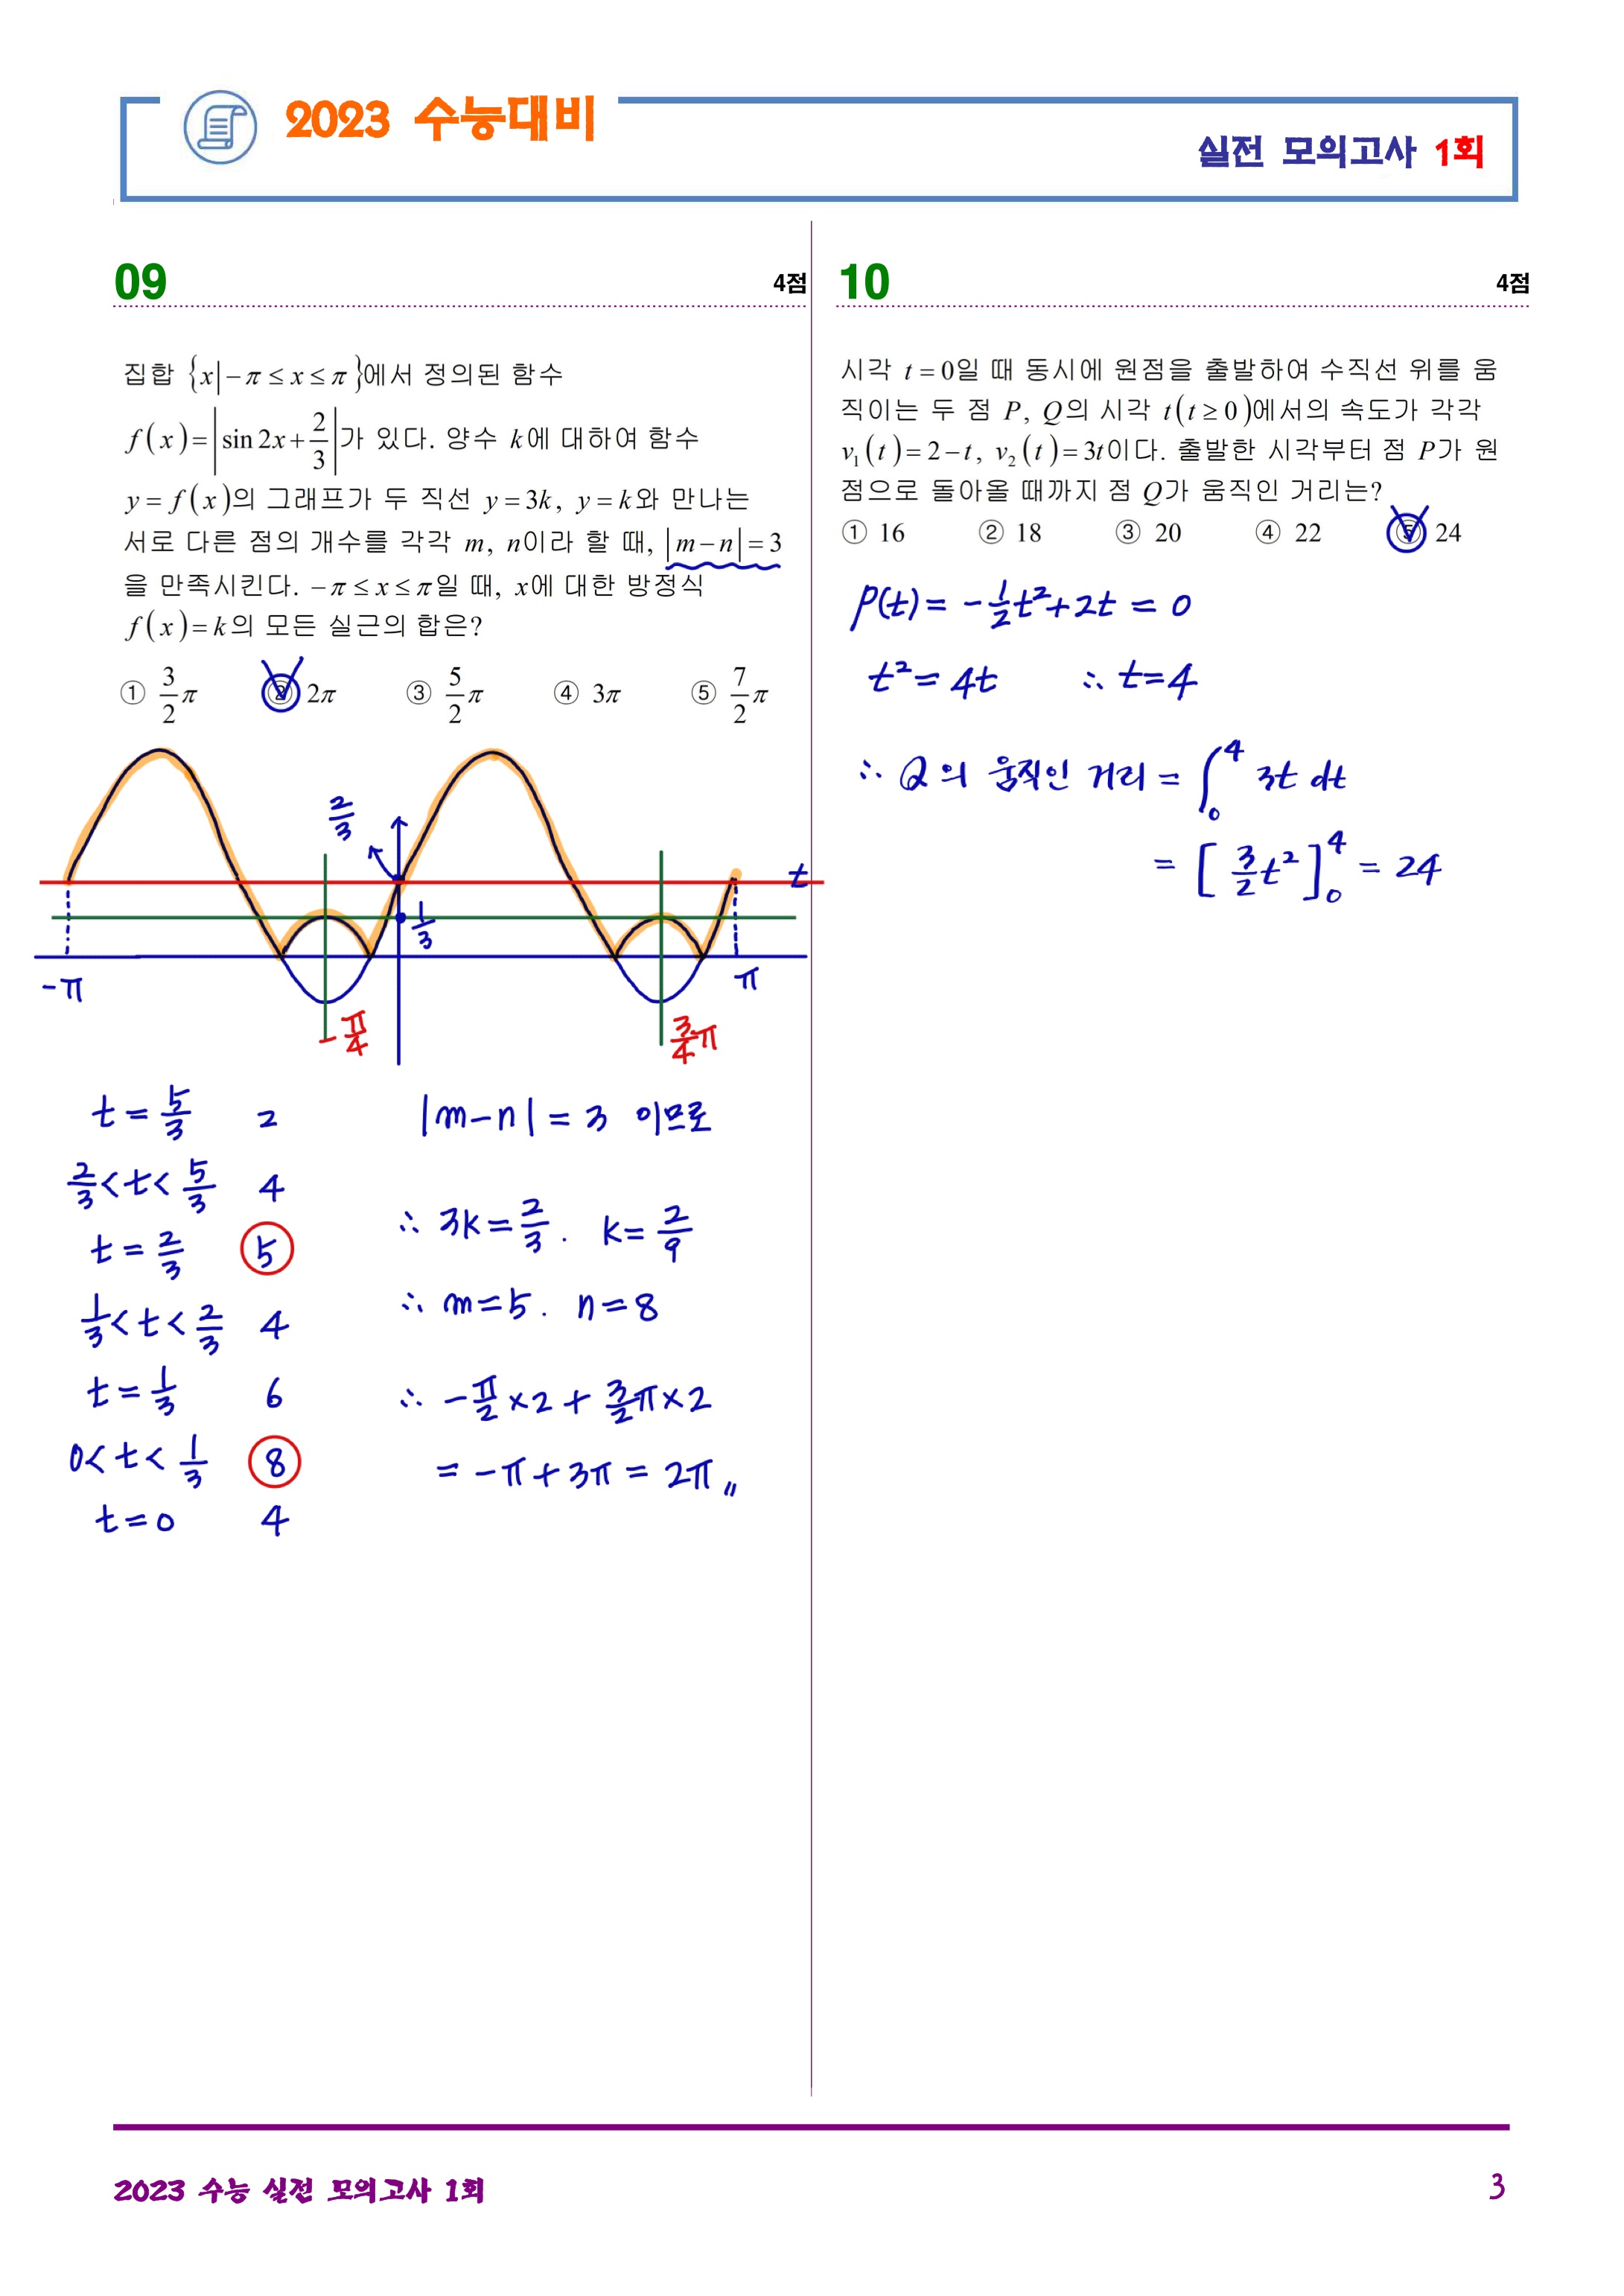 2023 수능대비
실전 모의고사 1회
09 4점
집합 {x|-π≤x≤π}에서 정의된 함수
f(x)=|sin2x+2/3|가 있다. 양수 k에 대하여 함수
y=f(x)의 그래프가 두 직선 y=3k, y=k와 만나는
서로 다른 점의 개수를 각각 m, n이라 할 때, |m-n|=3
을 만족시킨다. -π≤x≤π일 때, x에 대한 방정식
f(x)=k의 모든 실근의 합은?
① 3/2π ② 2π ③ 5/2π ④ 3π ⑤ 7/2π
2/3
t
1/3
-π
π
-π/4
3/4π
t=5/3 2
2/3<t<5/3 4
t=2/3 5
1/3<t<2/3 4
t=1/3 6
0<t<1/3 8
t=0 4
|m-n|=3 이므로
∴ 3k=2/3. k=2/9
∴ m=5. n=8
∴ -π/2×2+3/2π×2
=-π+3π=2π〃
10 4점
시각 t=0일 때 동시에 원점을 출발하여 수직선 위를 움
직이는 두 점 P, Q의 시각 t(t≥0)에서의 속도가 각각
v₁(t)=2-t, v₂(t)=3t이다. 출발한 시각부터 점 P가 원
점으로 돌아올 때까지 점 Q가 움직인 거리는?
① 16 ② 18 ③ 20 ④ 22 ⑤ 24
P(t)=-1/2t²+2t=0
t²=4t ∴ t=4
∴ Q의 움직인 거리=∫₀⁴ 3t dt
=[3/2t²]₀⁴=24
2023 수능 실전 모의고사 1회
3